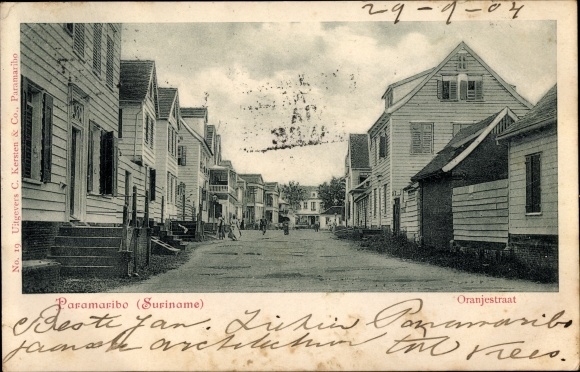 29-9-04
No. 19 Uitgevers C. Kersten & Co., Paramaribo
Paramaribo (Suriname)
Oranjestraat
Beste Jan. Ziehier Paramaribo
architectuur tot Vrees.